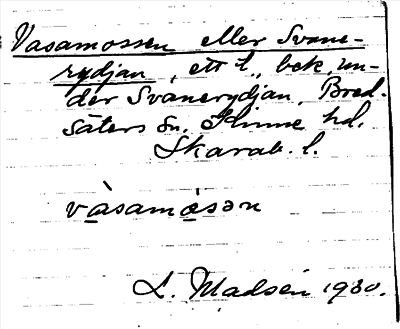 Vasamossen eller Svane-
rydjan, ett t., bek. un-
der Svanerydjan, Bred-
säters sn, Kinne hd.
Skarab. l.
vàsamo̱sən
L. Madsén 1930.